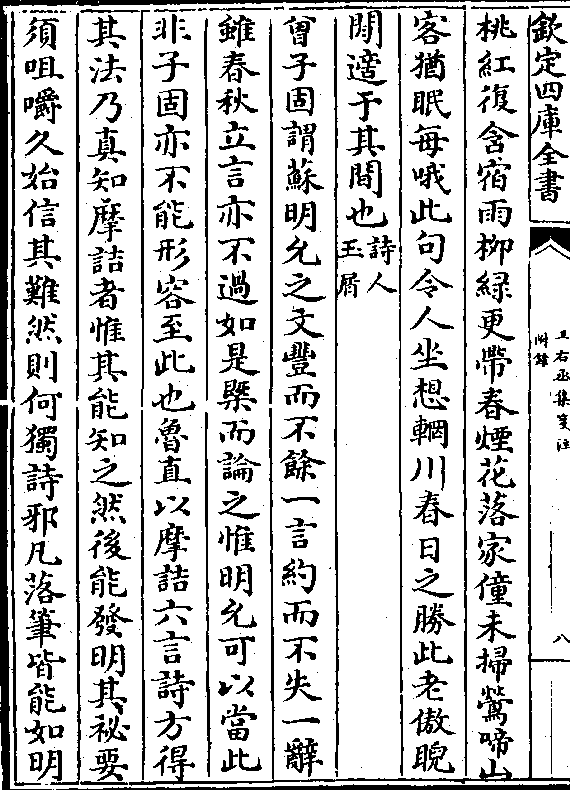 欽定四庫全書
王右丞集箋注
附錄
八
桃紅復含宿雨柳緑更帶春煙花落家僮未掃鶯啼山
客猶眠每哦此句令人坐想輞川春日之勝此老傲睨
閒適于其間也詩人
玉屑
曾子固謂蘇明允之文豐而不餘一言約而不失一辭
雖春秋立言亦不過如是槩而論之惟明允可以當此
非子固亦不能形容至此也魯直以摩詰六言詩方得
其法乃真知摩詰者惟其能知之然後能發明其祕要
須咀嚼久始信其難然則何獨詩邪凡落筆皆能如明